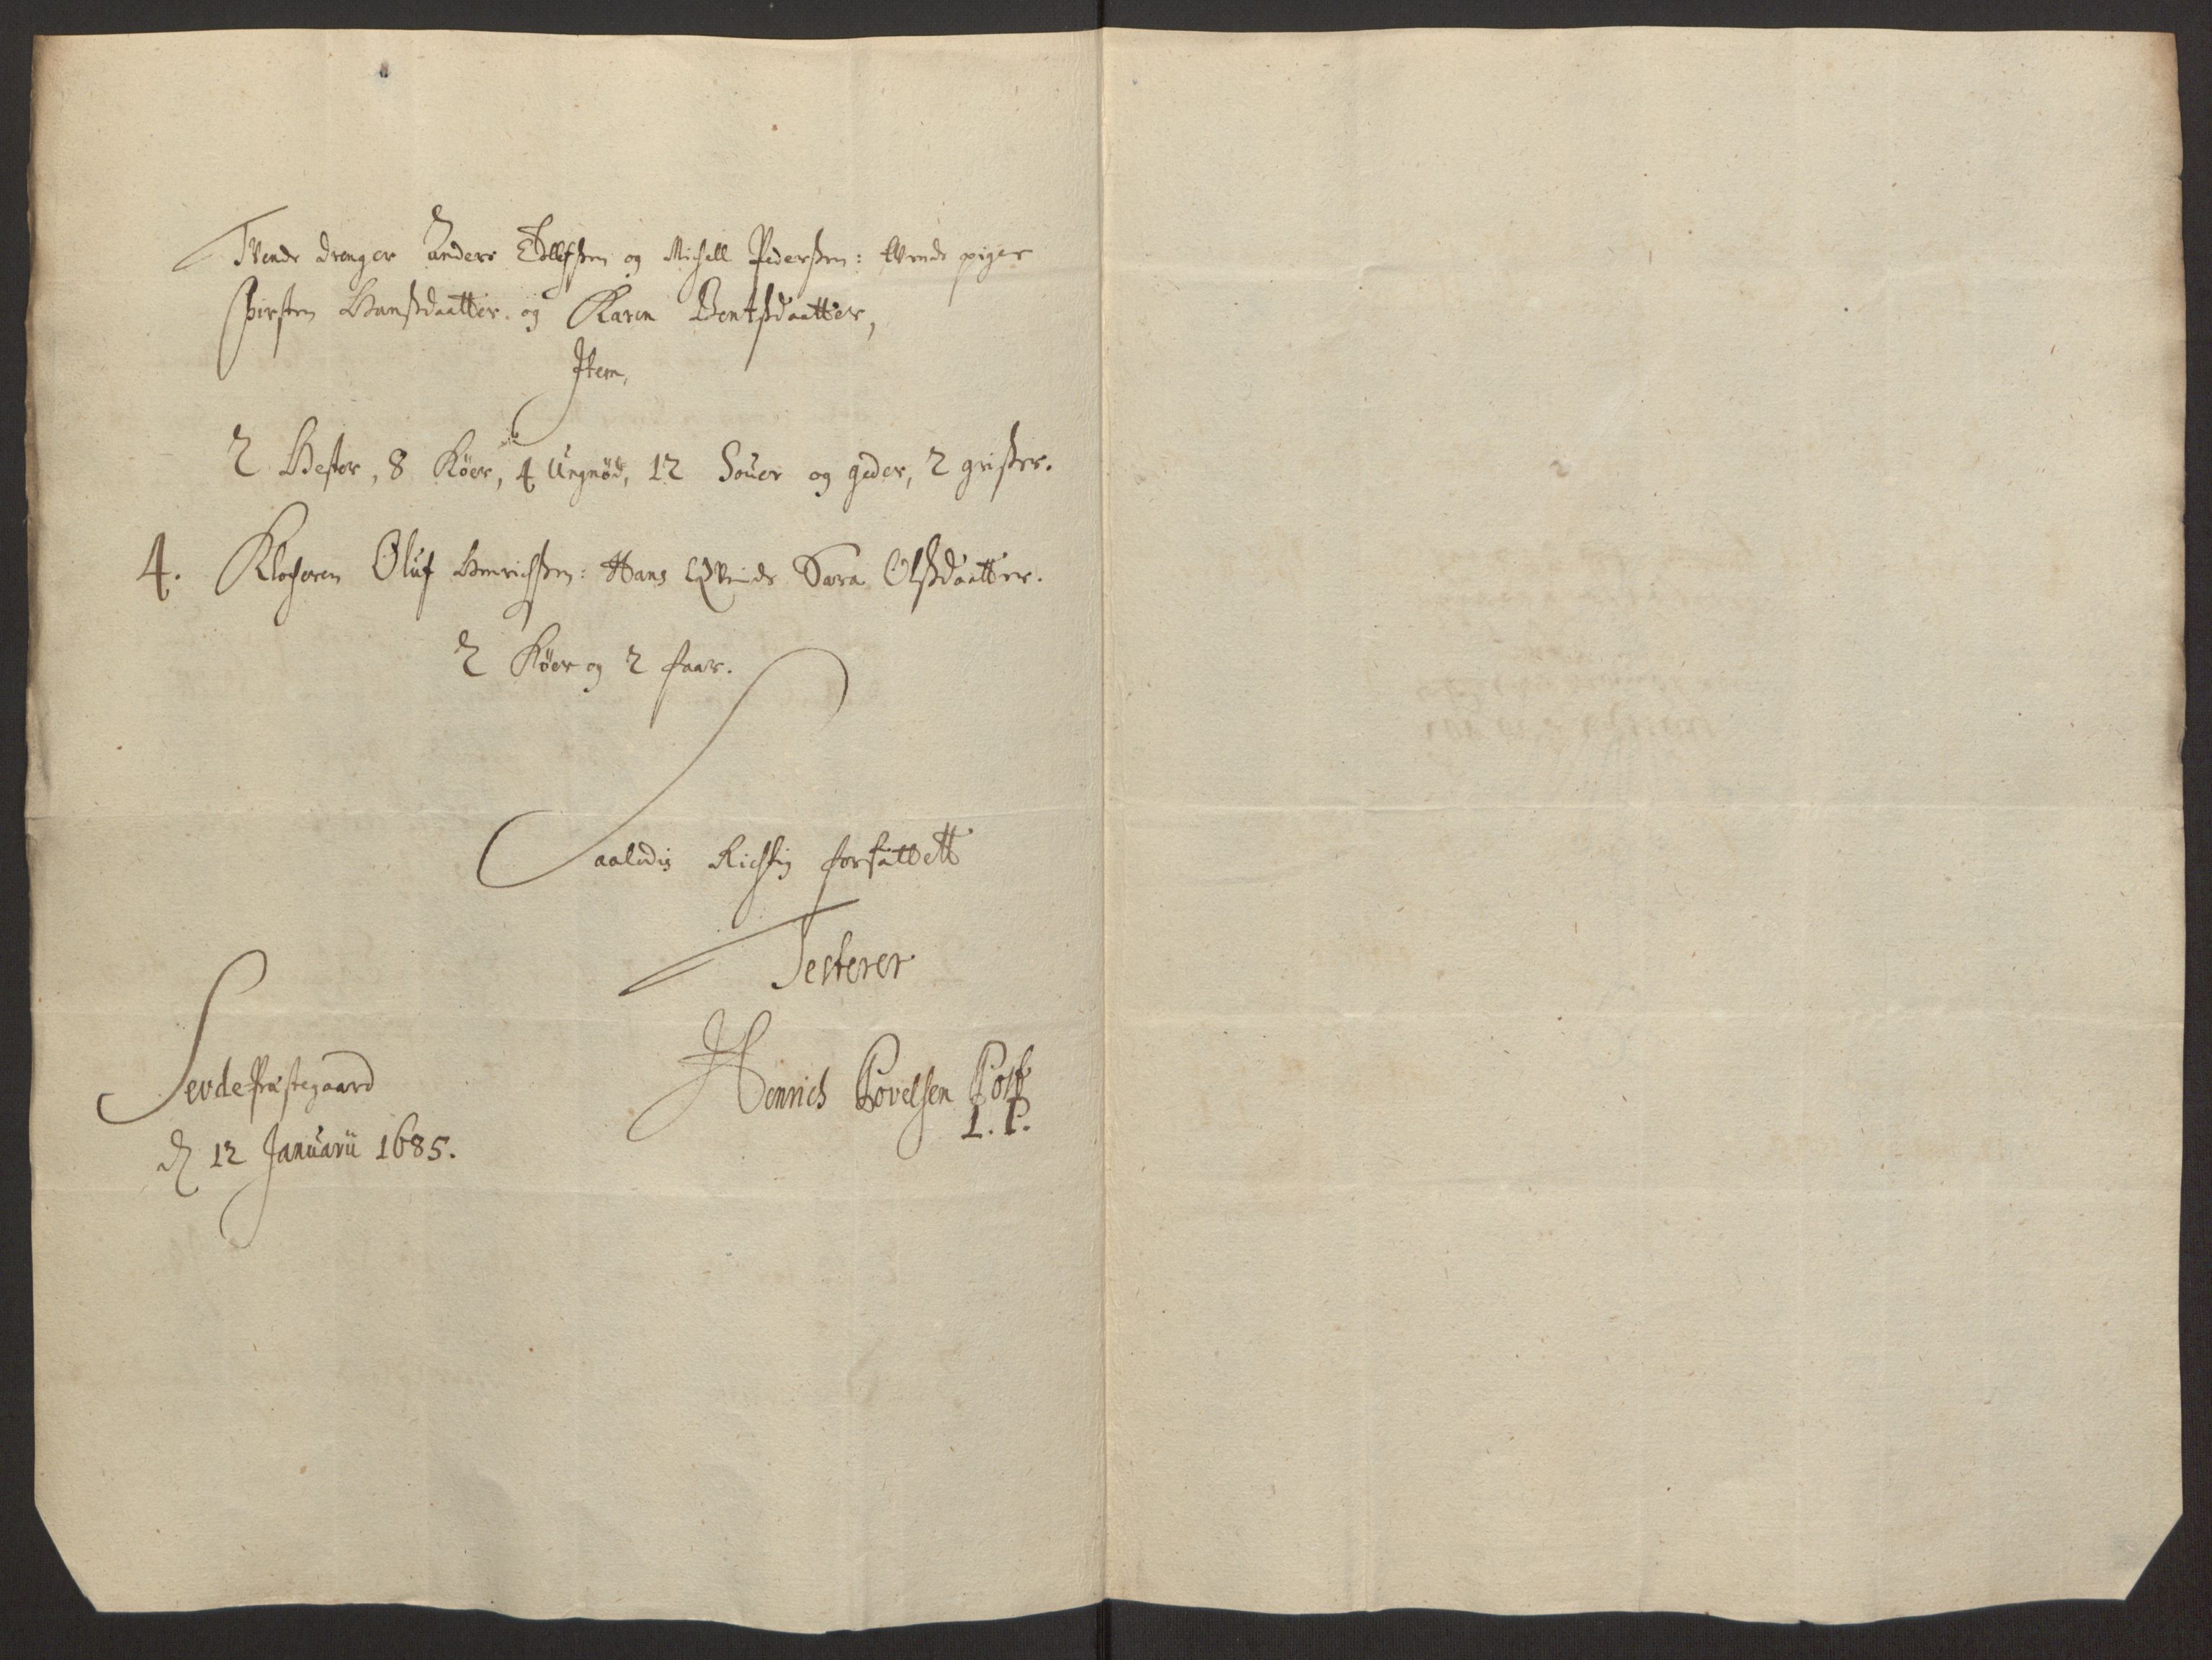 Tvende drenger Anders Tollefsen og Michell Pedersen: tvende piger
Kirsten Hanßdaatter. og Karen Bentsdaatter,
Item,
2 Hester, 8 Köer, 4 Ungnöd, 12 Souer og geder, 2 grißer.
4. Klocheren Oluf Henrichsen: Hans Qvinde Sara Olsdaatter.
2 Köer og 2 faar.
Saaledis Richtig forfattett
Testerer
Henrich Povelsen
L. P.
Præstegaard
d 12 Januarii 1685.